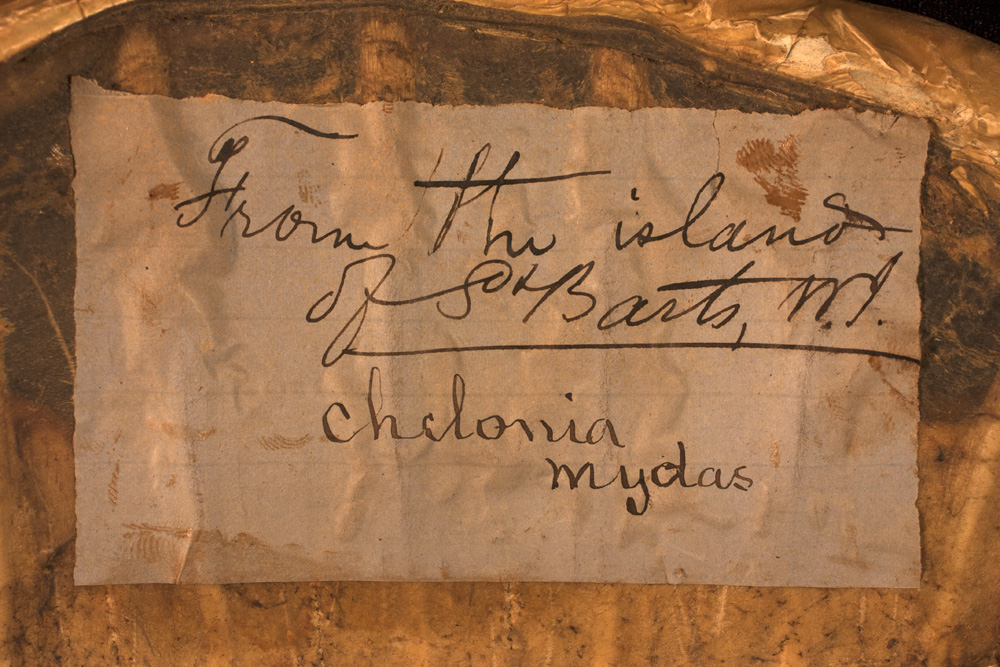 From the island
of St Barts, W.I.
Chelonia
mydas